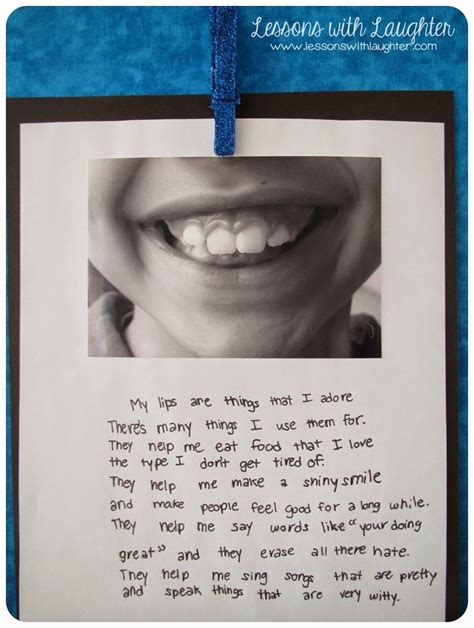 Lessons with Laughter
www.lessonswithlaughter.com
My lips are things that I adore
There's many things I use them for.
They help me eat food that I love
the type I don't get tired of.
They help me make a shiny smile
and make people feel good for a long while.
They help me say words like "your doing
great" and they erase all there hate.
They help me sing songs that are pretty
and speak things that are very witty.